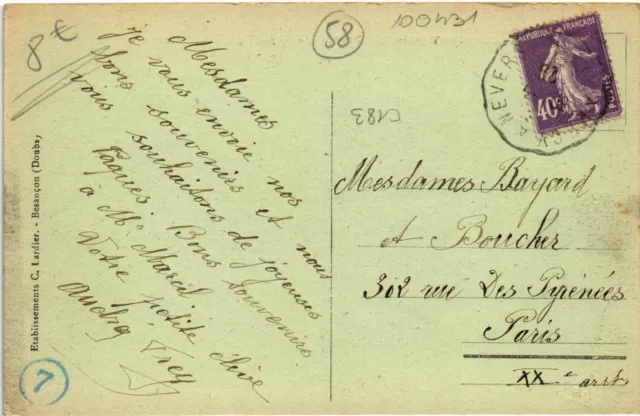 8€
58
100431
C183
REPUBLIQUE FRANÇAISE
40c
POSTES
A NEVER
Etablissements C. Lardier. - Besançon (Doubs)
Mesdames
Je vous envoie nos
bons souvenirs et nous
vous souhaitons de joyeuses
Paques. Bons souvenirs
à Mr Marcel
Votre petite élève
Mesdames Bayard
et Boucher
302 rue Des Pyrénées
Paris
XXe arrt
7